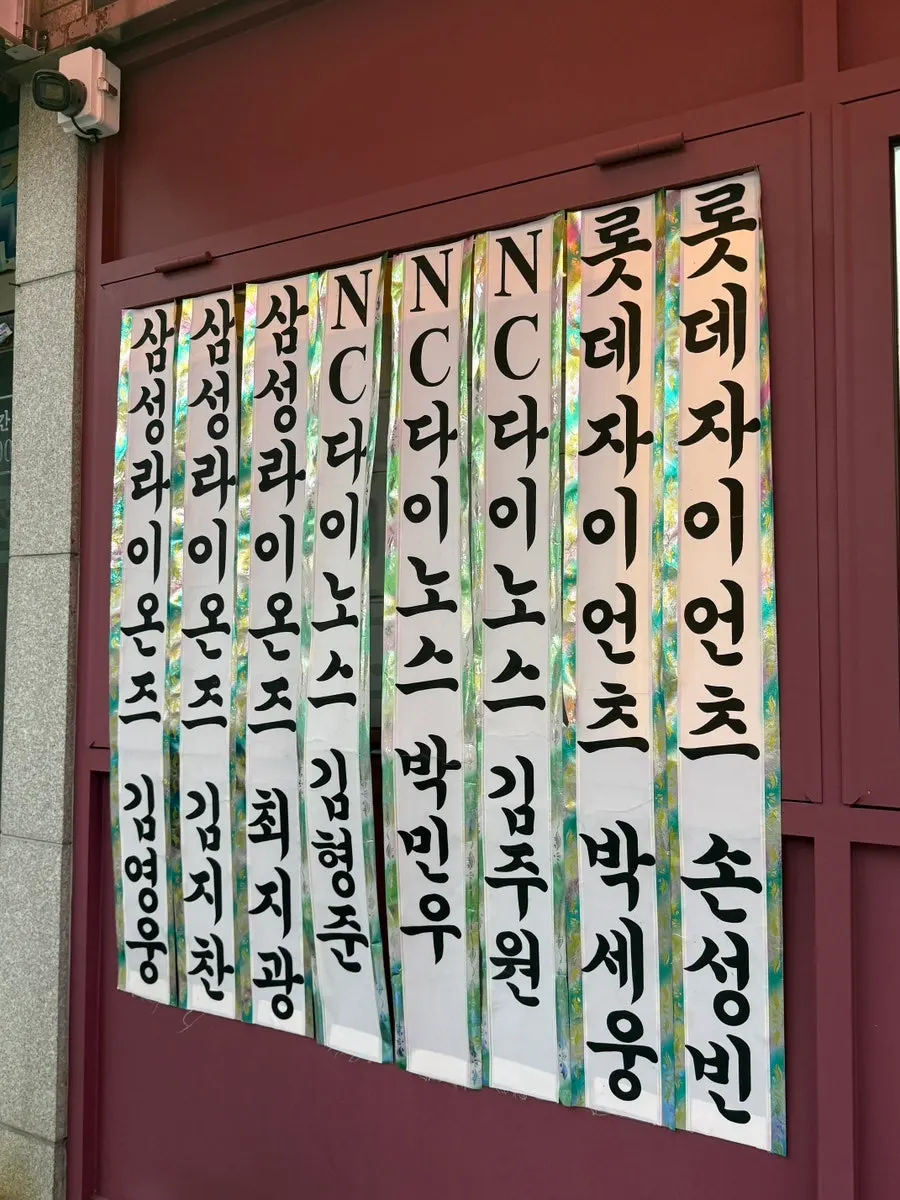 삼성라이온즈 김영웅
삼성라이온즈 김지찬
삼성라이온즈 최지광
NC다이노스 김형준
NC다이노스 박민우
NC다이노스 김주원
롯데자이언츠 박세웅
롯데자이언츠 손성빈